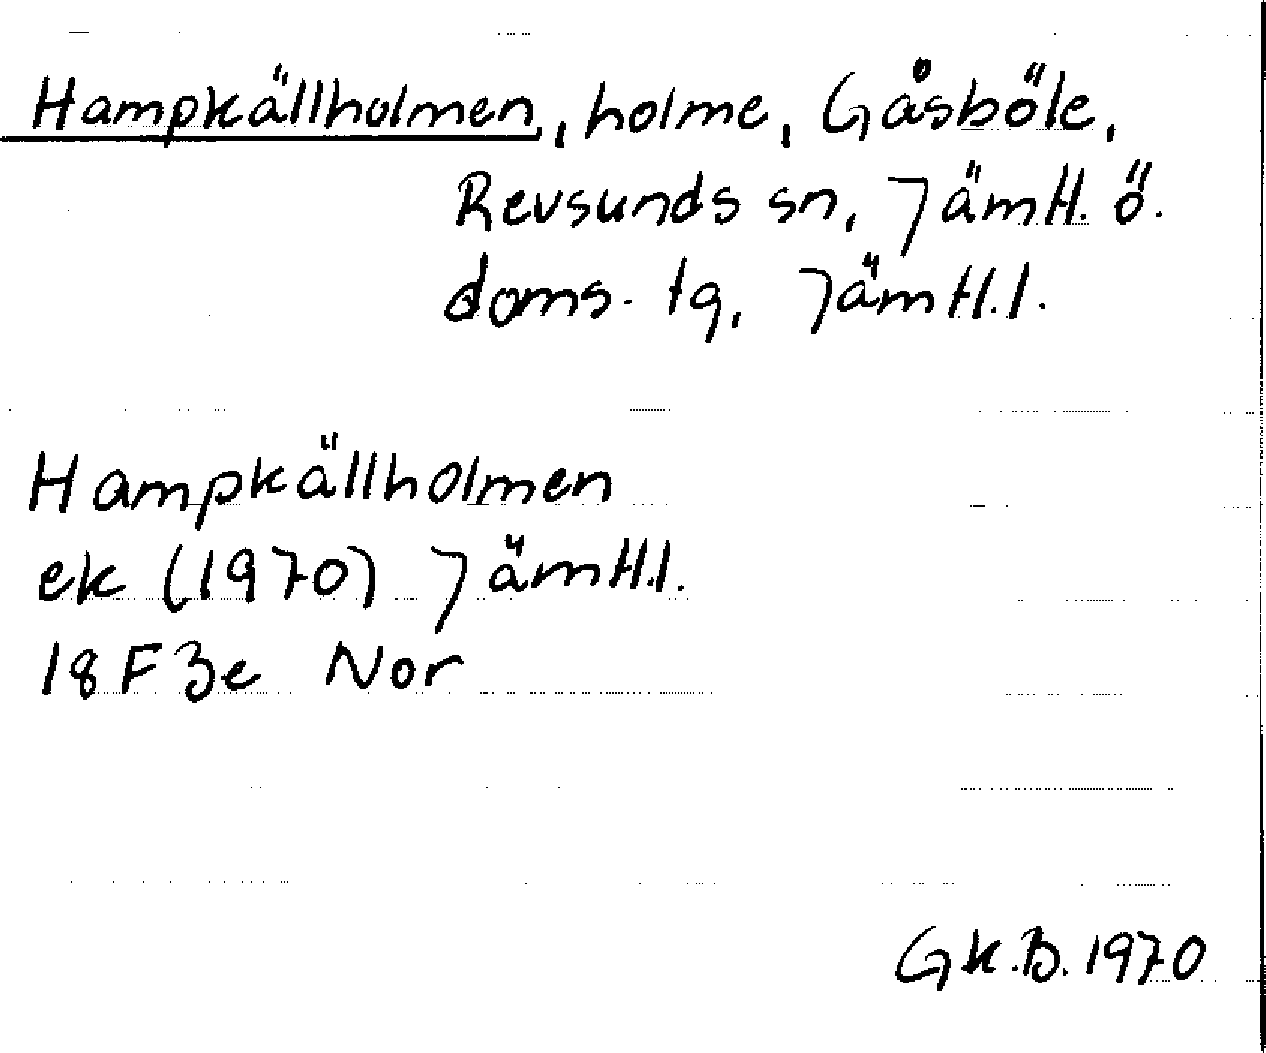 Hampkällholmen, holme, Gåsböle,
Revsunds sn, Jämtl. ö.
doms. tg, Jämtl.l.
Hampkällholmen
ek (1970) Jämtl.l.
18F3e Nor
Gk.B.1970